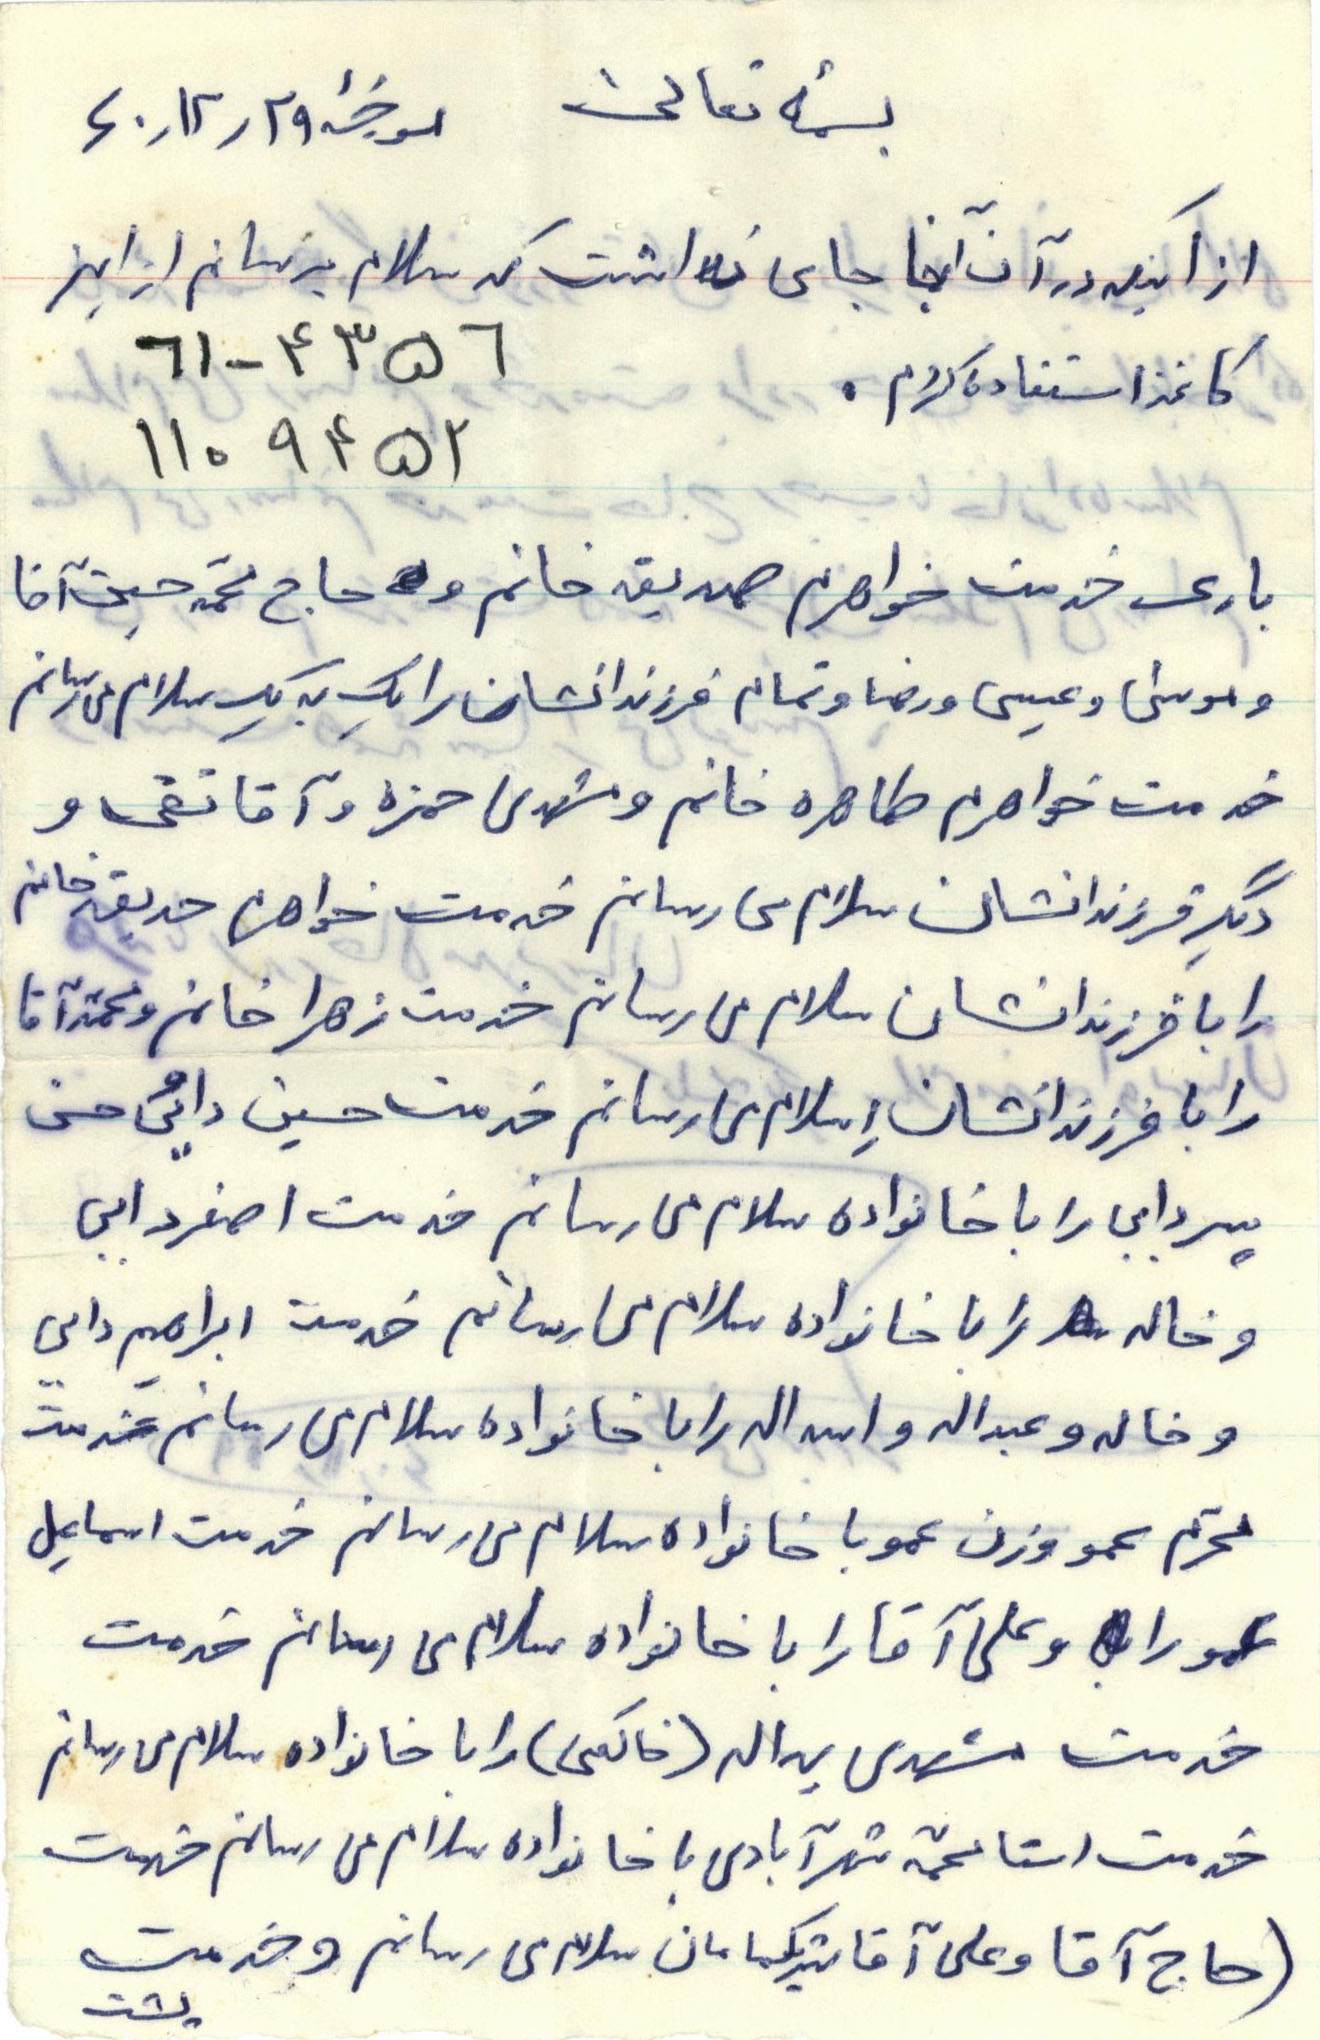 بسمه تعالی
مورخه ۲۹ر۱۲ر۶۰
از اینکه در آن آنجا جای نداشت که سلام برسانم از این
کاغذ استفاده کردم .
۶۱-۴۳۵۶
۱۱۰۹۴۵۲
باری خدمت خواهرم صدیقه خانم و حاج محمد حسین آقا
و موسی و عیسی و رضا و تمام فرزندانشان را یک به یک سلام می رسانم
خدمت خواهرم طاهره خانم و مشهدی حمزه و آقا تقی و
دیگر فرزندانشان سلام می رسانم خدمت خواهرم خانم
را با فرزندانشان سلام می رسانم خدمت زهرا خانم و محمد آقا
را با فرزندانشان سلام می رسانم خدمت حسین دایی حسن
پسر دایی را با خانواده سلام می رسانم خدمت اصغر دایی
و خاله را با خانواده سلام می رسانم خدمت ابراهیم دایی
و خاله و عبداله و اسداله را با خانواده سلام می رسانم خدمت
محترم عمو و زن عمو با خانواده سلام می رسانم خدمت اسماعیل
عمو را و علی آقا را با خانواده سلام می رسانم خدمت
خدمت مشهدی یداله را با خانواده سلام می رسانم
خدمت استا محمد شهرآبادی با خانواده سلام می رسانم خدمت
(حاج آقا و علی آقا سلام می رسانم و خدمت
پشت